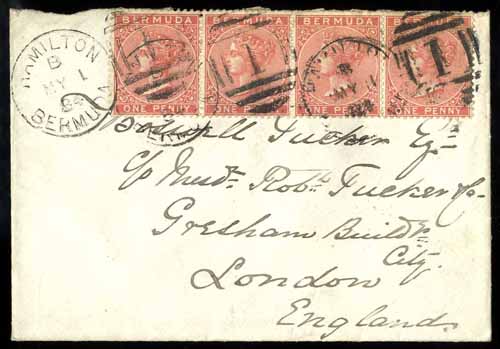 HAMILTON
B
MY 1
84
BERMUDA
BERMUDA BERMUDA BERMUDA BERMUDA
ONE PENNY ONE PENNY ONE PENNY ONE PENNY
1 1
B
MY 1
Tucker Esq
c/o Messrs Robt Tucker & Co
Gresham Buildgs
City.
London
England.